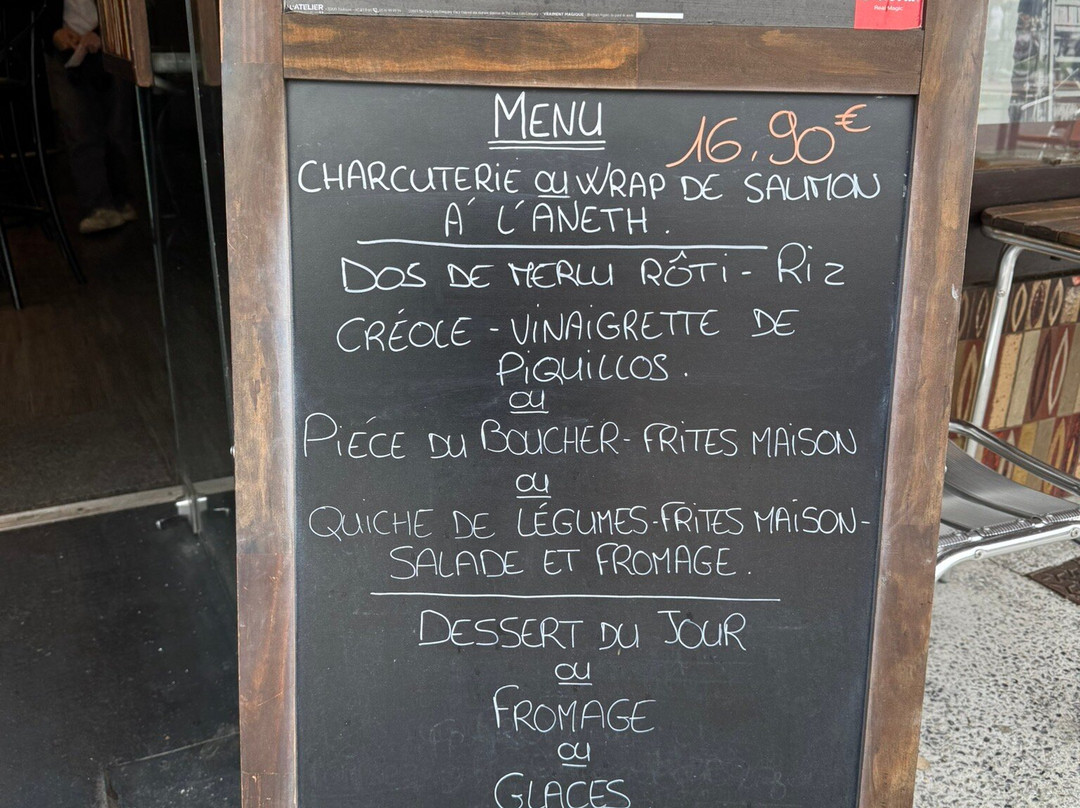 L'ATELIER
Real Magic
MENU
16,90€
CHARCUTERIE OU WRAP DE SAUMON
À L'ANETH.
DOS DE MERLU RÔTI - RIZ
CRÉOLE - VINAIGRETTE DE
PIQUILLOS.
OU
PIÉCE DU BOUCHER - FRITES MAISON
OU
QUICHE DE LÉGUMES - FRITES MAISON -
SALADE ET FROMAGE.
DESSERT DU JOUR
OU
FROMAGE
OU
GLACES